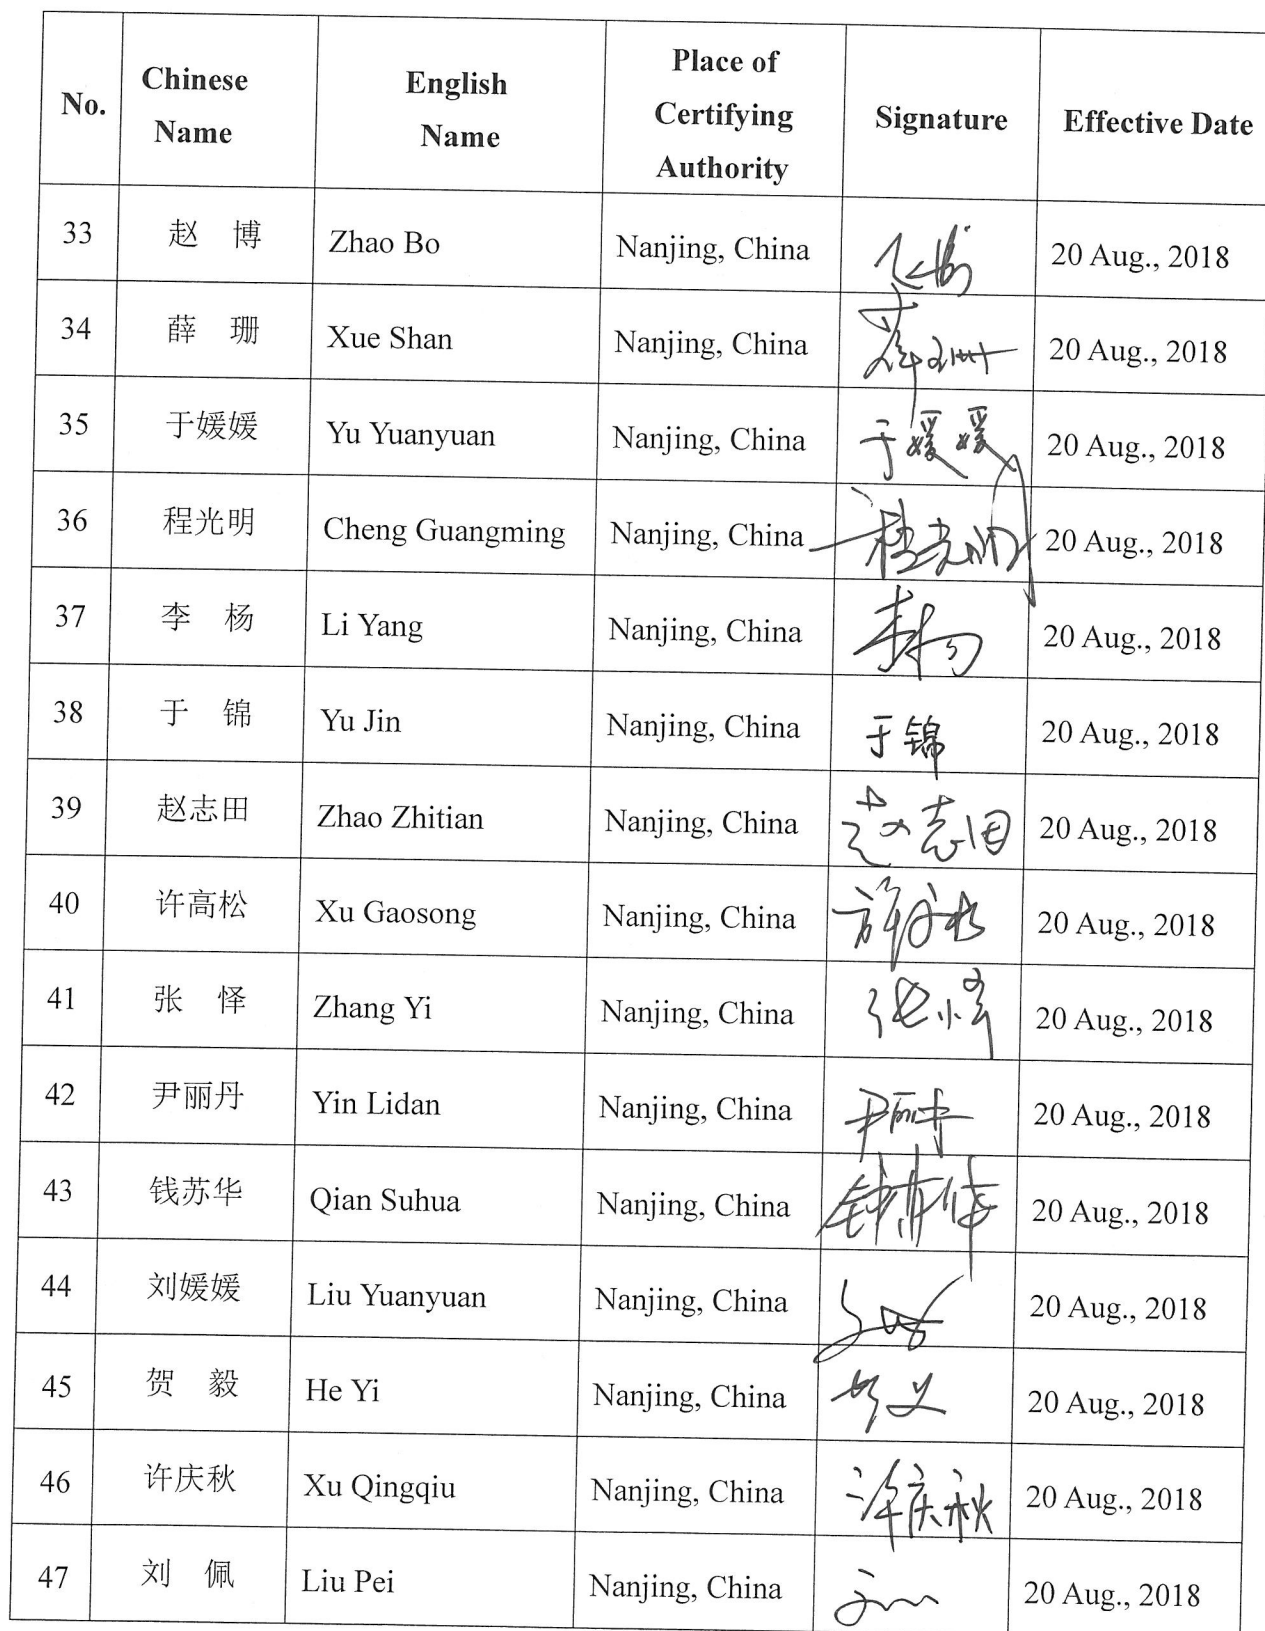 No.
Chinese
Name
English
Name
Place of
Certifying
Authority
Signature
Effective Date
33 赵 博 Zhao Bo Nanjing, China 20 Aug., 2018
34 薛 珊 Xue Shan Nanjing, China 薛珊 20 Aug., 2018
35 于媛媛 Yu Yuanyuan Nanjing, China 于媛媛 20 Aug., 2018
36 程光明 Cheng Guangming Nanjing, China 程光明 20 Aug., 2018
37 李 杨 Li Yang Nanjing, China 李杨 20 Aug., 2018
38 于 锦 Yu Jin Nanjing, China 于锦 20 Aug., 2018
39 赵志田 Zhao Zhitian Nanjing, China 赵志田 20 Aug., 2018
40 许高松 Xu Gaosong Nanjing, China 许高松 20 Aug., 2018
41 张 怿 Zhang Yi Nanjing, China 张怿 20 Aug., 2018
42 尹丽丹 Yin Lidan Nanjing, China 尹丽丹 20 Aug., 2018
43 钱苏华 Qian Suhua Nanjing, China 钱苏华 20 Aug., 2018
44 刘媛媛 Liu Yuanyuan Nanjing, China 20 Aug., 2018
45 贺 毅 He Yi Nanjing, China 20 Aug., 2018
46 许庆秋 Xu Qingqiu Nanjing, China 许庆秋 20 Aug., 2018
47 刘 佩 Liu Pei Nanjing, China 20 Aug., 2018